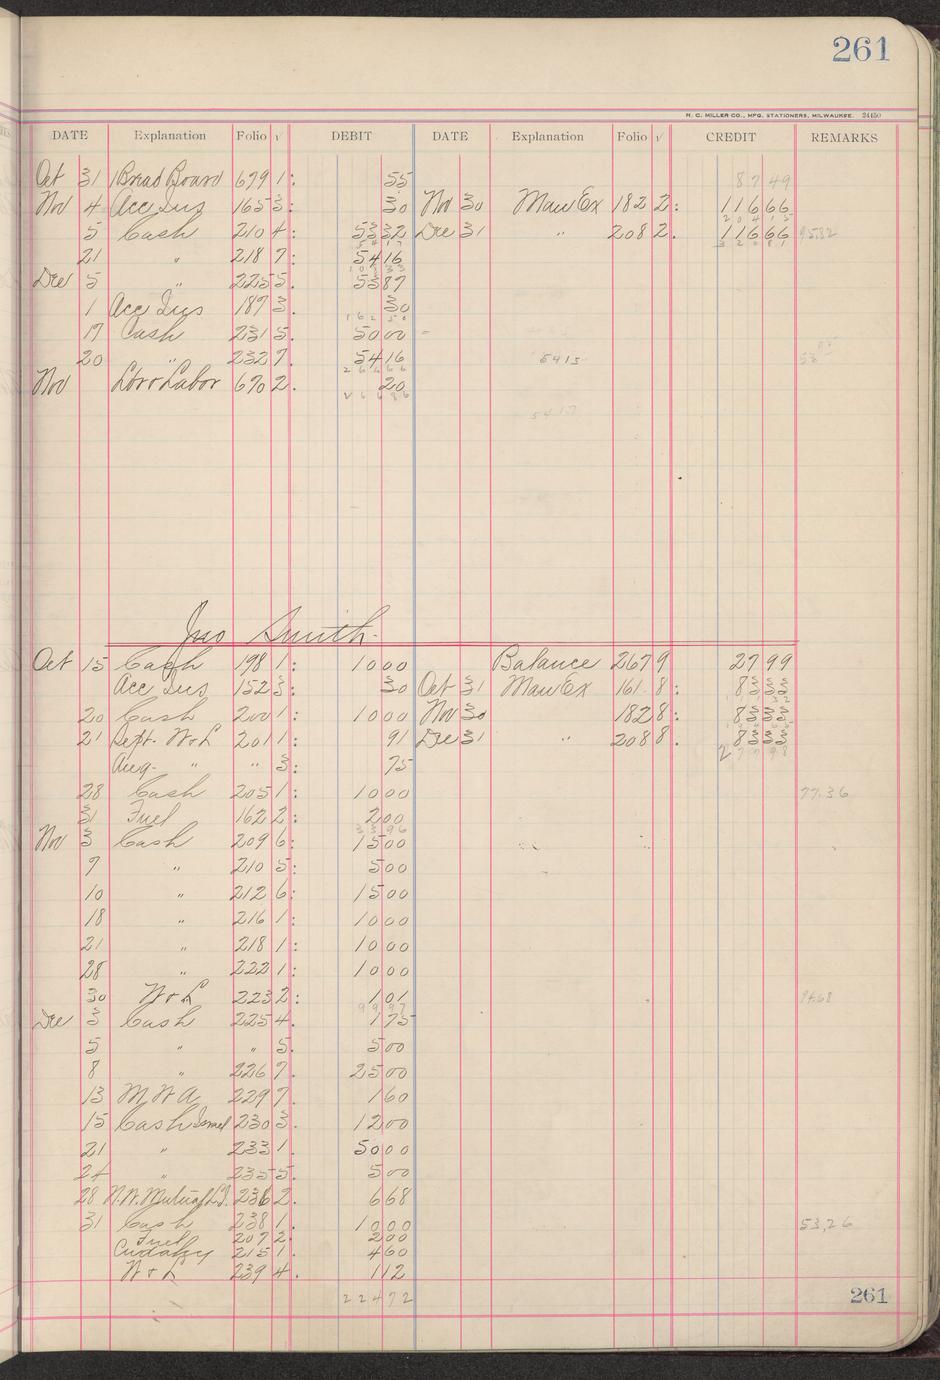 261
H. C. MILLER CO., MFG. STATIONERS, MILWAUKEE. 24450
DATE Explanation Folio √ DEBIT DATE Explanation Folio √ CREDIT REMARKS
Oct 31 Bread Board 679 1: 55 87 49
Nov 4 Acc Ins 165 3: 30 Nov 30 Manu Ex 182 2: 116 66
204 15
5 Cash 210 4: 53 32 Dec 31 " 208 2. 116 66 95.82
54 17 320 81
21 " 218 7: 54 16
108 33
Dec 5 " 225 5. 53 87
1 Acc Ins 187 3. 30
162 50
17 Cash 231 5. 50 00
20 " 232 7. 54 16 5415
266 66
Nov Labor 670 2. 20
266 86
5417
Jno Smith
Oct 15 Cash 198 1: 10 00 Balance 267 9 27 99
Acc Ins 152 3: 30 Oct 31 Manu Ex 161 8: 83 33
20 Cash 200 1: 10 00 Nov 30 182 8: 83 33
21 Sept. W & L 201 1: 91 Dec 31 " 208 8. 83 33
277 98
Aug. " " 3: 75
28 Cash 205 1: 10 00 77.36
31 Fuel 162 2: 2 00
33 96
Nov 3 Cash 209 6: 15 00
7 " 210 5: 5 00
10 " 212 6: 15 00
18 " 216 1: 10 00
21 " 218 1: 10 00
28 " 222 1: 10 00
30 W & L 223 2: 1 01 94.68
99 97
Dec 3 Cash 225 4. 1 75
5 " " 5. 5 00
8 " 226 7. 25 00
13 M W A 229 7. 1 60
15 Cash Israel 230 3. 12 00
21 " 233 1. 50 00
24 " 235 5. 5 00
28 N.W. Mutual L.I. 236 2. 6 68
31 Cash 238 1. 10 00 53.26
Fuel 207 2. 2 00
Cudahy 215 1. 4 60
W & L 239 4. 1 12
224 72
261